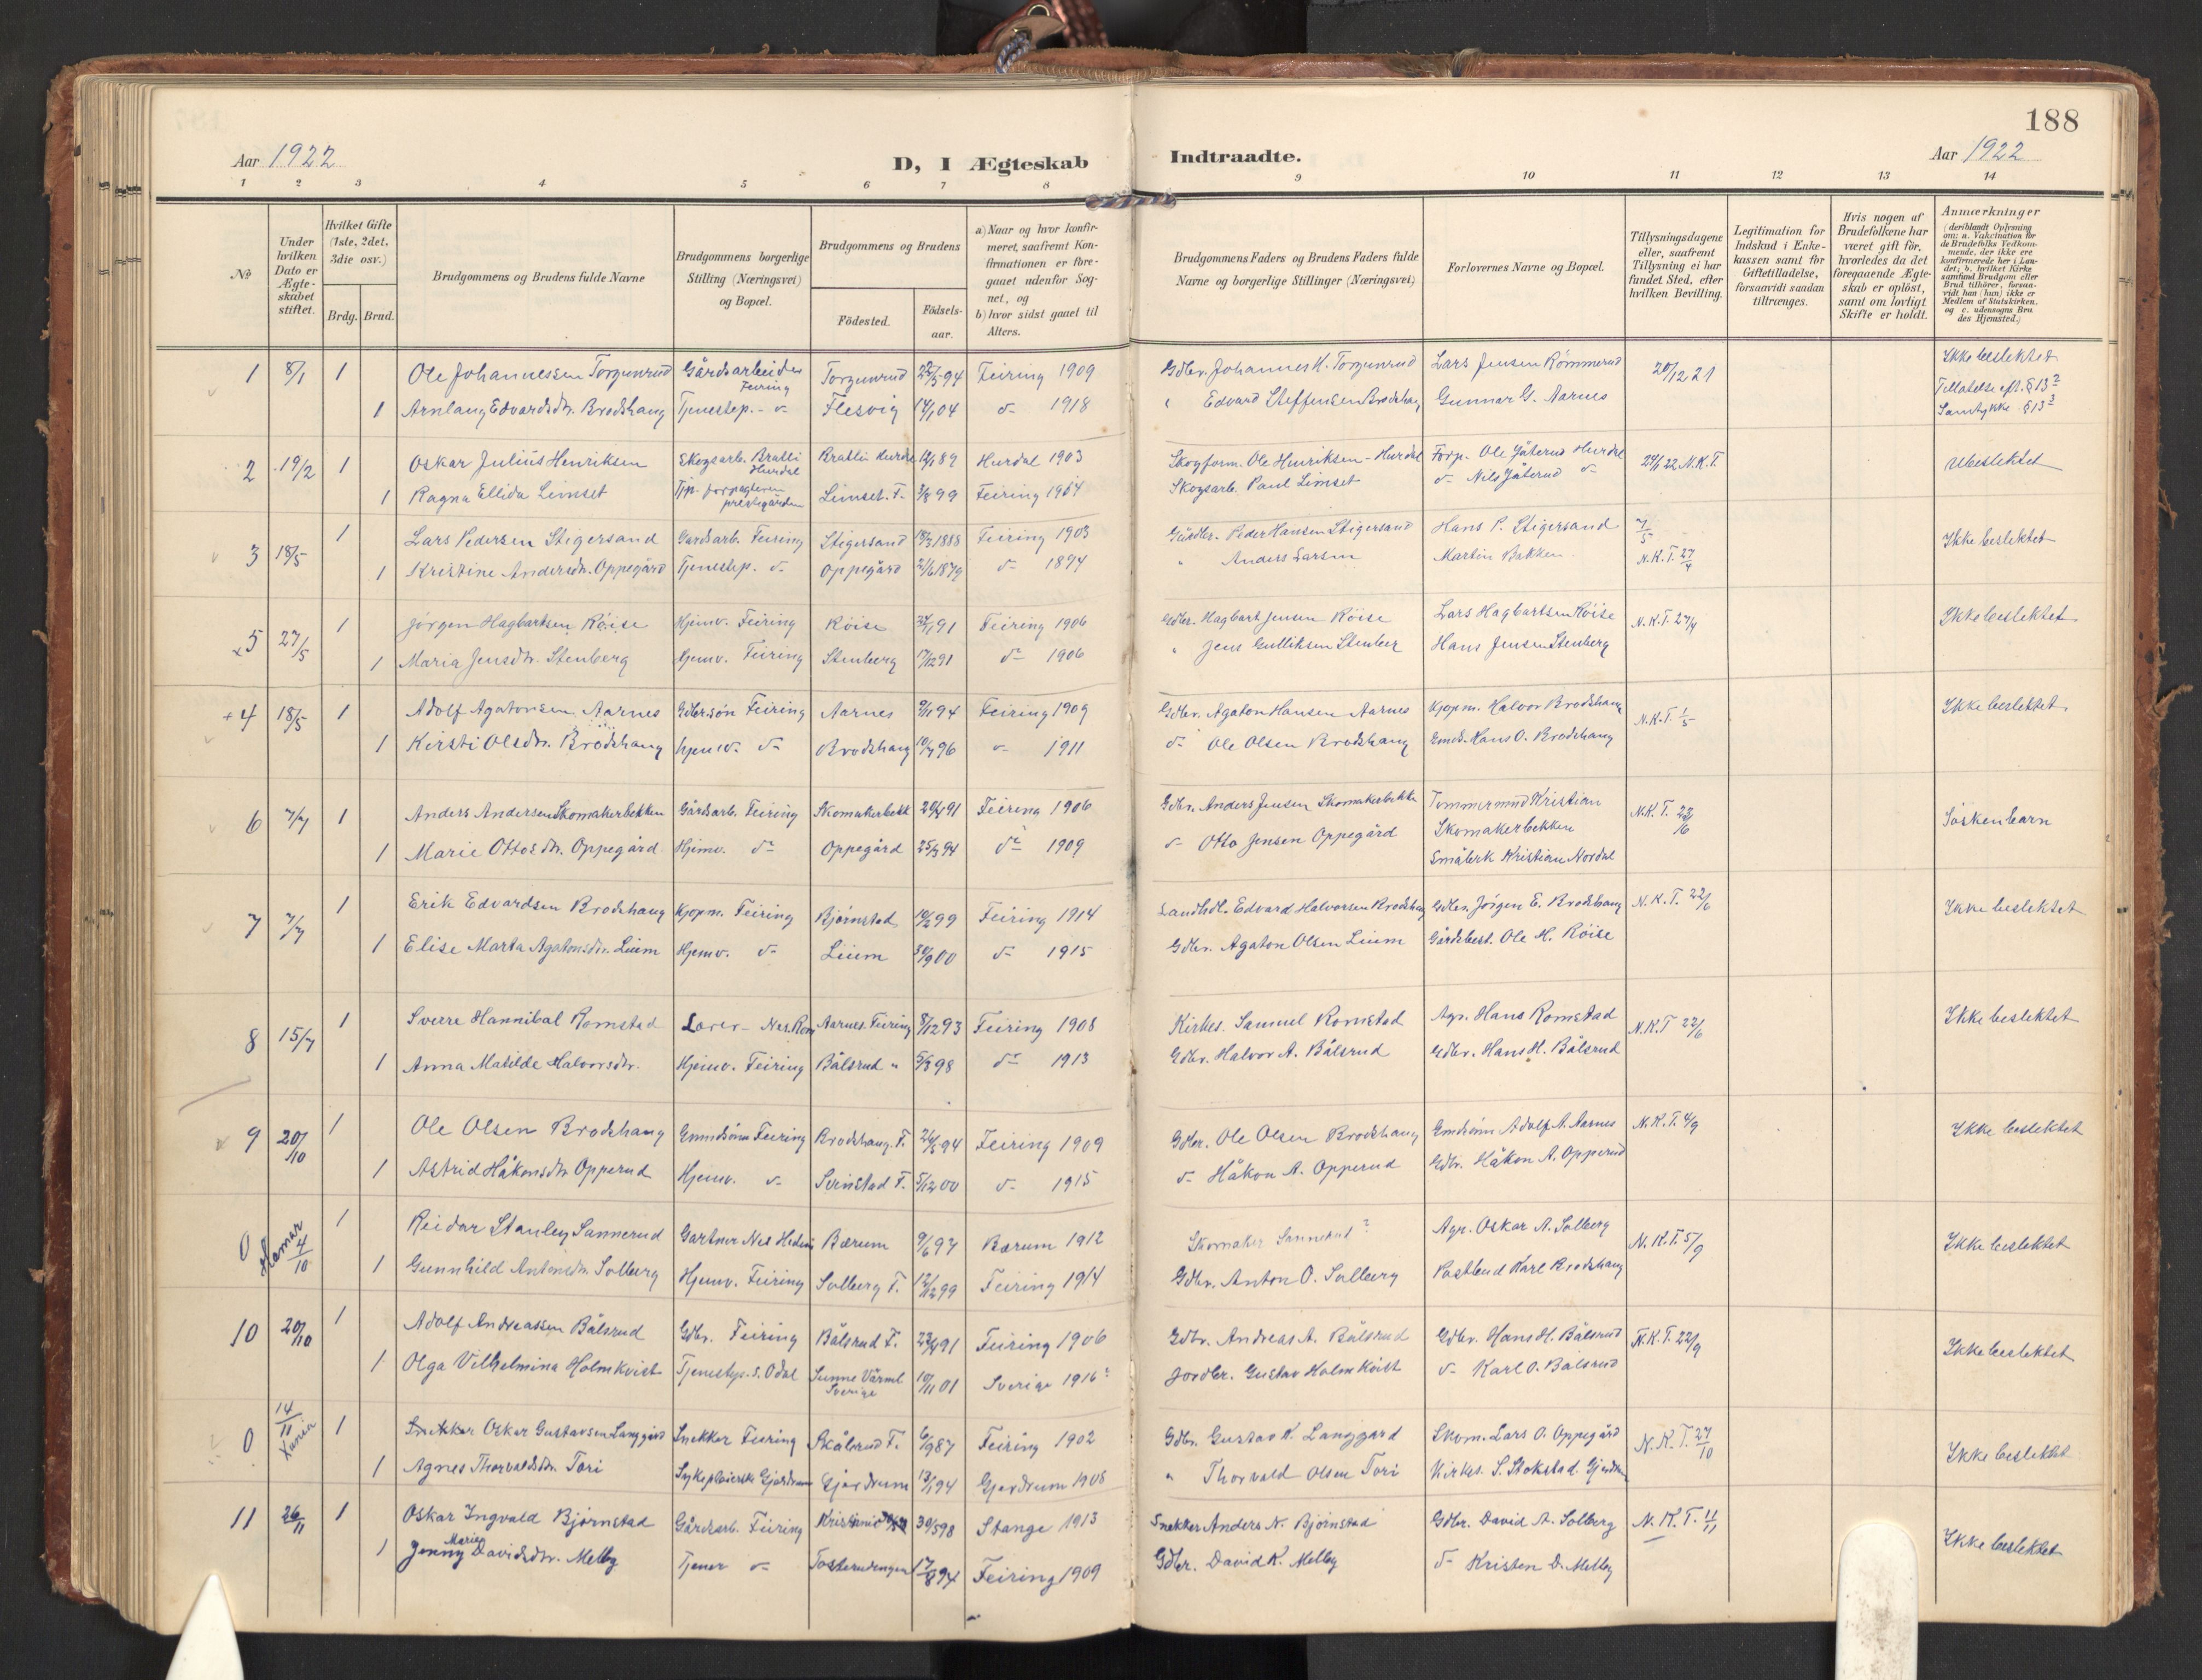 188
Aar 1922
D, I Ægteskab Indtraadte.
Aar 1922
1 2 3 4 5 6 7 8 9 10 11 12 13 14
No
Under hvilken Dato er Ægteskabet stiftet.
Hvilket Gifte (1ste, 2det, 3die osv.)
Brdg. Brud.
Brudgommens og Brudens fulde Navne
Brudgommens borgerlige Stilling (Næringsvei) og Bopæl.
Brudgommens og Brudens
Födested.
Födselsaar.
a) Naar og hvor konfirmeret, saafremt Konfirmationen er foregaaet udenfor Sognet, og
b) hvor sidst gaaet til Alters.
Brudgommens Faders og Brudens Faders fulde Navne og borgerlige Stillinger (Næringsvei)
Forlovernes Navne og Bopæl.
Tillysningsdagene eller, saafremt Tillysning ei har fundet Sted, efter hvilken Bevilling.
Legitimation for Indskud i Enkekassen samt for Giftetilladelse, forsaavidt saadan tiltrænges.
Hvis nogen af Brudefolkene har været gift för, hvorledes da det foregaaende Ægteskab er oplöst, samt om lovligt Skifte er holdt.
Anmærkninger (deriblandt Oplysning om: a. Vakcination for de Brudefolks Vedkommende, der ikke ere konfirmerede her i Landet; b. hvilket Kirkesamfund Brudgom eller Brud tilhører, forsaavidt han (hun) ikke er Medlem af Statskirken. og c. udensogns Brudes Hjemsted.)
1 8/1 1 Ole Johannessen Torgunrud Gårdsarbeider Feiring Torgunrud 22/5 94 Feiring 1909 Gdbr. Johannes H. Torgunrud Lars Jensen Rømmerud 20/12 21 Ikke beslektet
1 Arnlaug Edvardsdtr. Brodshaug Tjenestep. - do Flesvig 14/1 04 do 1918 " Edvard Steffensen Brodshaug Gunnar G. Aarnes Tillatelse eft. § 13² Samtykke § 13³
2 19/2 1 Oskar Julius Henriksen Skogsarb. Bratli Hurdal Bratli Hurdal 12/1 89 Hurdal 1903 Skogform. Ole Henriksen - Hurdal Forp. Ole Gåterud Hurdal 24/1 22 N.K.T. Ubeslektet
1 Ragna Ellida Limset Tjp. forpagteren prestegården Limset. F. 3/8 99 Feiring 1914 Skogsarb. Paul Limset do Nils Gåterud do
3 18/5 1 Lars Pedersen Stigersand Gardsarb. Feiring Stigersand 18/3 1888 Feiring 1903 Gårdbr. Peder Hansen Stigersand Hans P. Stigersand 7/5 Ikke beslektet
1 Kristine Andersdtr. Oppegård Tjenestep. do Oppegård 21/6 1879 do 1894 " Anders Larsen Martin Bakken N.K.T. 27/4
5 27/5 1 Jørgen Hagbartsen Røise Hjemv. Feiring Røise 22/1 91 Feiring 1906 Gdbr. Hagbart Jensen Röise Lars Hagbartsen Röise N.K.T. 27/4 Ikke beslektet
1 Maria Jensdtr. Stenberg Hjemv. Feiring Stenberg 17/12 91 do 1906 " Jens Gulliksen Stenber Hans Jensen Stenberg
4 18/5 1 Adolf Agatonsen Aarnes Gdbrsön Feiring Aarnes 9/1 94 Feiring 1909 Gdbr. Agaton Hansen Aarnes Kjøpm. Halvor Brodshaug N.K.T. 1/5 Ikke beslektet
1 Kirsti Olsdtr. Brodshaug hjemv. do Brodshaug 10/7 96 do 1911 do Ole Olsen Brodshaug Gmds. Hans O. Brodshaug
6 7/7 1 Anders Andersen Skomakerbekken Gårdsarb. Feiring Skomakerbekk 20/4 91 Feiring 1906 Gdbr. Anders Jensen Skomakerbekke Tømmermnd Kristian Skomakerbekken N.K.T. 22/6 Söskenbarn
1 Marie Ottosdtr. Oppegård Hjemv. do Oppegård 25/3 94 do 1909 do Otto Jensen Oppegård Småbrk Kristian Nordal
7 7/7 1 Erik Edvardsen Brodshaug Kjøpm. Feiring Bjørnstad 10/2 99 Feiring 1914 Landhdl. Edvard Halvorsen Brodshaug Gdbr. Jörgen E. Brodshaug N.K.T. 22/6 Ikke beslektet
1 Elise Marta Agatonsdtr. Liium Hjemv. do Liium 30/9 00 do 1915 Gdbr. Agaton Olsen Liium Gårdsbest. Ole H. Röise
8 15/7 1 Sverre Hannibal Romstad Lærer - Nes. Rom Aarnes. Feiring 8/12 93 Feiring 1908 Kirkes. Samuel Romstad Agr. Hans Romstad N.K.T 22/6 Ikke beslektet
1 Anna Matilde Halvorsdtr. Hjemv. Feiring Bålsrud " 5/8 98 do 1913 Gdbr. Halvor A. Bålsrud Gdbr. Hans H. Bålsrud
9 20/10 1 Ole Olsen Brodshaug Gmmdsönn Feiring Brodshaug. F. 26/5 94 Feiring 1909 Gdbr. Ole Olsen Brodshaug Gmdsönn Adolf A. Aarnes N.K.T. 4/9 Ikke beslektet
1 Astrid Håkonsdtr Opperud Hjemv. do Svinstad F. 5/12 00 do 1915 do Håkon A. Opperud Gdbr. Håkon A. Opperud
0 Hamar 4/10 1 Reidar Stanley Sannerud Gartner Nes Hedem Bærum 9/6 97 Bærum 1912 Skomaker Sannerud? Agr. Oskar A. Solberg N.K.T. 5/9 Ikke beslektet
1 Gunnhild Antonsdtr. Solberg Hjemv. Feiring Solberg F. 12/12 99 Feiring 1914 Gdbr. Anton O. Solberg Postbud Karl Brodshaug
10 20/10 1 Adolf Andreassen Bålsrud Gdbr. Feiring Bålsrud F. 23/4 91 Feiring 1906 Gdbr. Andreas A. Bålsrud Gdbr. Hans H. Bålsrud N.K.T. 22/9 Ikke beslektet
1 Olga Vilhelmina Holmkvist Tjenestep. S. Odal Sunne Värml. Sverige 10/11 01 Sverige 1916? Jordbr. Gustav Holmkvist do Karl O. Bålsrud
0 14/11 Xania 1 Snekker Oskar Gustavsen Langgård Snekker Feiring Skålsrud F. 6/9 87 Feiring 1902 Gdbr. Gustav K. Langgard Skom. Lars O. Oppegård N.K.T. 27/10 Ikke beslektet
1 Agnes Thorvaldsdtr. Tori Sykepleierske Gjerdrum Gjerdrum 13/1 94 Gjerdrum 1908 " Thorvald Olsen Tori Kirkes. S. Stokstad. Gjerdrum
11 26/11 1 Oskar Ingvald Bjørnstad Gårdsarb. Feiring Kristiania 30/5 98 Stange 1913 Snekker Anders N. Bjørnstad Gdbr. David A. Solberg N.K.T. 11/11 Ikke beslektet
1 Jenny Marie Davidsdtr. Melby Tjener do Tosterudengen 17/8 94 Feiring 1909 Gdbr. David K. Melby do Kristen D. Melby